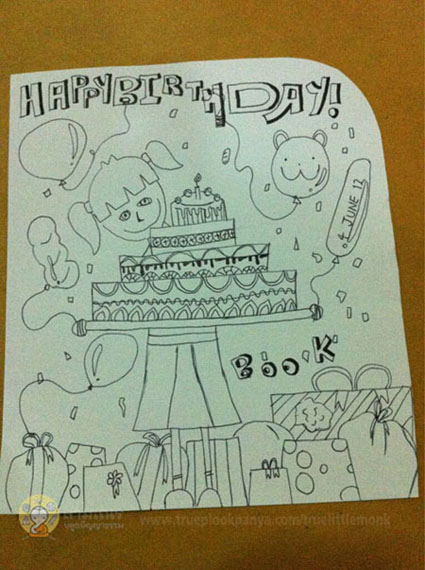 HAPPYBIRTHDAY!
4 JUNE 12
BooK
www.trueplookpanya.com/truelittlemonk